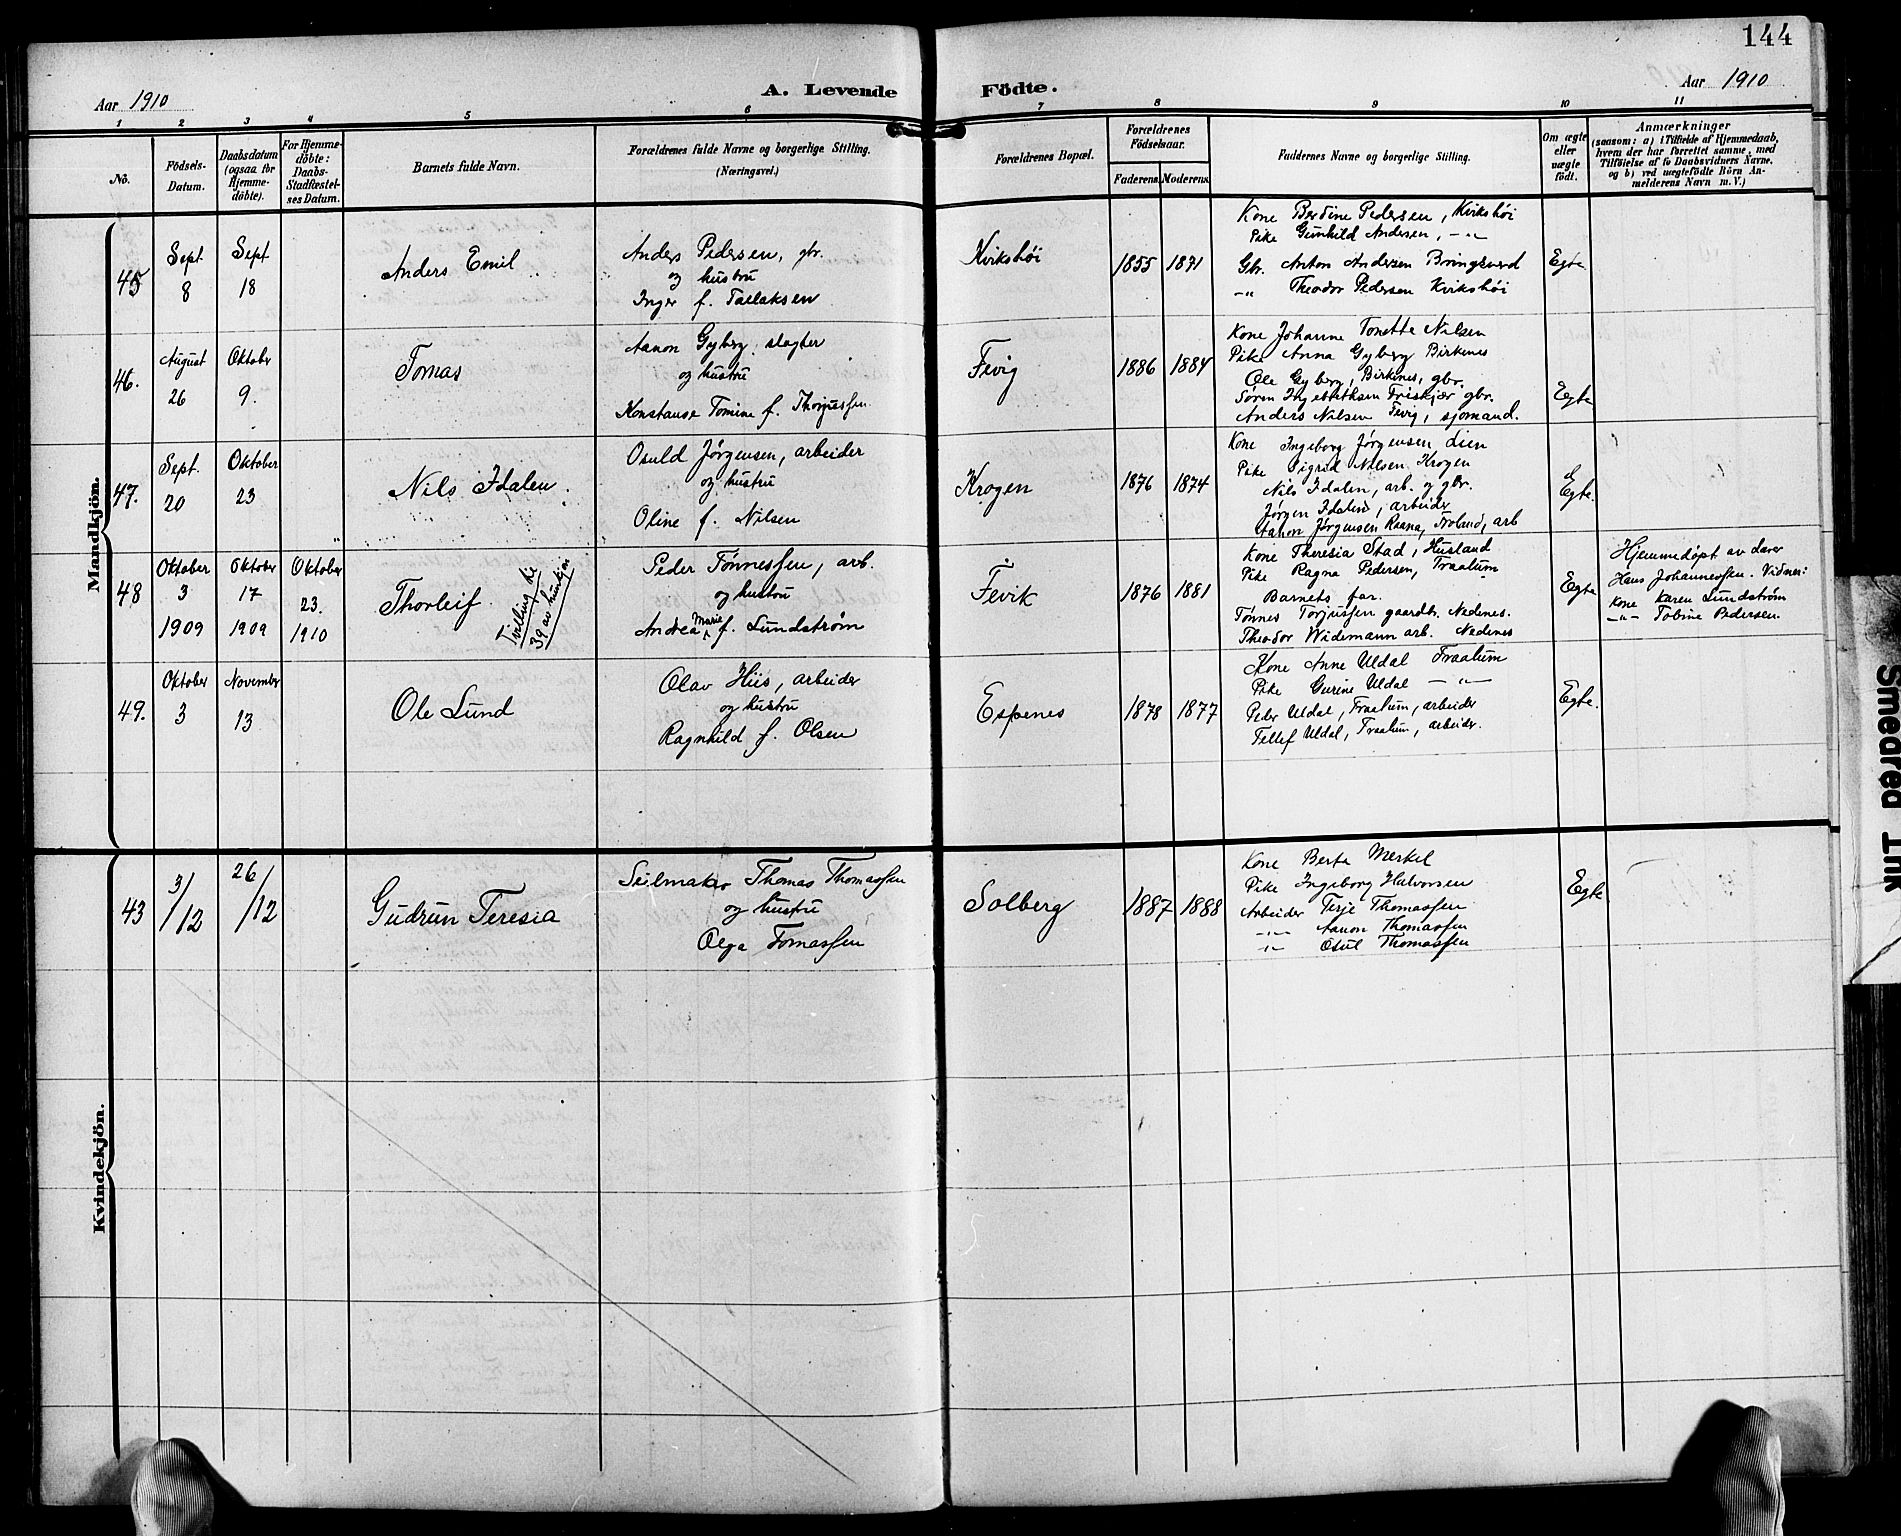 144
Aar 1910
A. Levende Födte.
Aar 1910
1 2 3 4 5 6 7 8 9 10 11
No.
Födsels-
Datum.
Daabsdatum
(ogsaa for
Hjemme-
döbte).
For Hjemme-
döbte:
Daabs-
Stadfæstel-
ses Datum.
Barnets fulde Navn.
Forældrenes fulde Navne og borgerlige Stilling.
(Næringsvei.)
Forældrenes Bopæl.
Forældrenes
Födselsaar.
Faderens. Moderens.
Faddernes Navne og borgerlige Stilling.
Om ægte
eller
uægte
födt.
Anmærkninger
(saasom: a) i Tilfælde af Hjemmedaab,
hvem der har forrettet samme, med
Tilföielse af to Daabsvidners Navne,
og b) ved uægtefödte Börn An-
melderens Navn m. V.)
Mandkjön.
45
Sept.
8
Sept
18
Anders Emil
Anders Pedersen, gbr.
og hustru
Inger f. Tallaksen
Kvikshöi
1855 1871
Kone Berdine Pedersen, Kvikshöi
Pike Gunhild Andersen, -"-
Gbr. Anton Andersen Bringsverd
-"- Theodor Pedersen Kvikshöi
Egte
46.
August
26
Oktober
9.
Tomas
Aanon Gyberg, slagter
og hustru
Konstanse Tomine f. Thorjussen
Fevig
1886 1884
Kone Johanne Tonette Nilsen
Pike Anna Gyberg Birkenes
Ole Gyberg, Birkenes, gbr.
Søren Friskjær gbr.
Anders Nilsen Fevig, sjømand.
Egte
47.
Sept.
20
Oktober
23
Nils Idalen
Osuld Jørgensen, arbeider
og hustru
Oline f. Nilsen
Krogen
1876 1874
Kone Ingeborg Jørgensen Lien
Pike Sigrid Nilsen Krogen
Nils Idalen, arb. og gbr.
Jørgen Idalen, arbeider
Aanon Jørgensen Raana, Froland, arb
Egte.
48
Oktober
3
1909
Oktober
17
1909
Oktober
23.
1910
Thorleif
Tvilling til
39 av kvinkjøn
Peder Tønnessen, arb.
og hustru
Andrea Marie f. Lundstrøm
Fevik
1876 1881
Kone Theresia Stad, Husland
Pike Ragna Pedersen, Traalum
Barnets far.
Tønnes Torjussen gaardbr. Nedenes.
Theodor Widemann arb. Nedenes
Egte
Hjemmedøpt av
Hans Johannessen. Vidner:
Kone Karen Lundstrøm
-"- Tobine Pedersen.
49.
Oktober
3
November
13
Ole Lund
Olav Hiis, arbeider
og hustru
Ragnhild f. Olsen
Espenes
1878 1877
Kone Anne Uldal Traalum
Pike Gurine Uldal -"-
Peder Uldal, Traalum, arbeider
Tellef Uldal, Traalum, arbeider.
Egte.
Kvindekjön.
43
3/12
26/12
Gudrun Teresia
Seilmaker Thomas Thomassen
og hustru
Olga Tomassen
Solberg
1887 1888
Kone Berta Merkel
Pike Ingeborg Halvorsen
Arbeider Terje Thomassen
-"- Aanon Thomassen
-"- Osul Thomassen
Egte
Smeared Ink